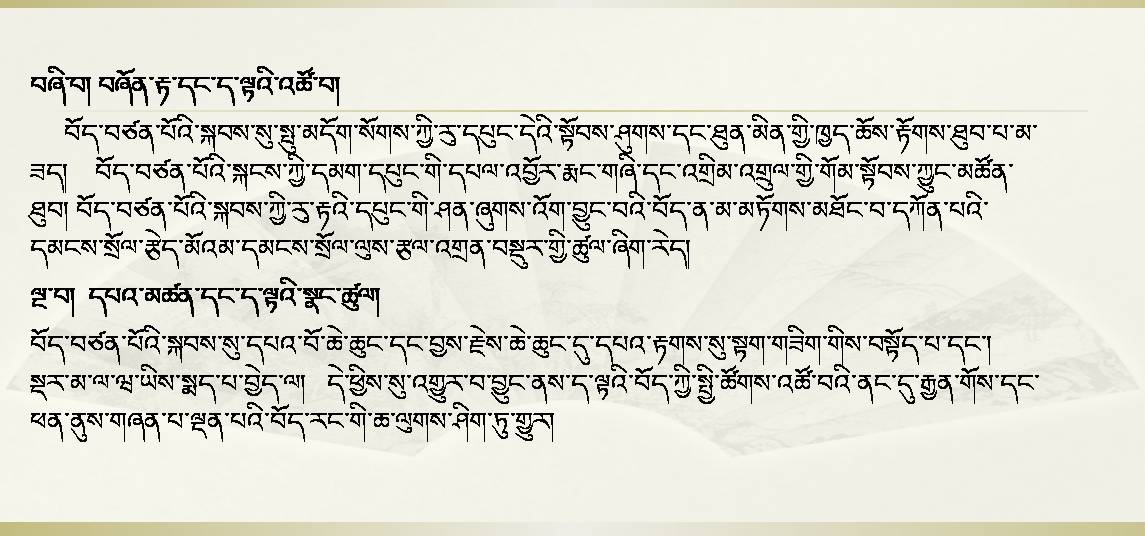 བཞི་བ། བཞོན་རྟ་དང་ད་ལྟའི་འཚོ་བ།
བོད་བཙན་པོའི་སྐབས་སུ་སྤུ་མདོག་སོགས་ཀྱི་རུ་དཔུང་དེའི་སྟོབས་ཤུགས་དང་ཐུན་མིན་གྱི་ཁྱད་ཆོས་རྟོགས་ཐུབ་པ་མ་
ཟད།  བོད་བཙན་པོའི་སྐངས་ཀྱི་དམག་དཔུང་གི་དཔལ་འབྱོར་རྨང་གཞི་དང་འགྲིམ་འགྲུལ་གྱི་གོམ་སྟོབས་ཀྱུང་མཚོན་
ཐུབ། བོད་བཙན་པོའི་སྐབས་ཀྱི་རུ་རྟའི་དཔུང་གི་ཤན་ཞུགས་འོག་བྱུང་བའི་བོད་ན་མ་མཏོགས་མཐོང་བ་དཀོན་པའི་
དམངས་སྲོལ་རྩེད་མོའམ་དམངས་སྲོལ་ལུས་རྩལ་འགྲན་བསྡུར་གྱི་ཚུལ་ཞིག་རེད།
ལྔ་བ།  དཔའ་མཚན་དང་ད་ལྟའི་སྣང་ཚུལ།
བོད་བཙན་པོའི་སྐབས་སུ་དཔའ་བོ་ཆེ་ཆུང་དང་བྱས་རྗེས་ཆེ་ཆུང་དུ་དཔའ་རྟགས་སུ་སྟག་གཟིག་གིས་བསྟོད་པ་དང་།
སྡར་མ་ལ་ཝ་ཡིས་སྨད་པ་བྱེད་ལ།  དེ་ཕྱིས་སུ་འགྱུར་བ་བྱུང་ནས་ད་ལྟའི་བོད་ཀྱི་སྤྱི་ཚོགས་འཚོ་བའི་ནང་དུ་རྒྱན་གོས་དང་
ཕན་ནུས་གཞན་པ་ལྡན་པའི་བོད་རང་གི་ཆ་ལུགས་ཤིག་ཏུ་གྱུར།